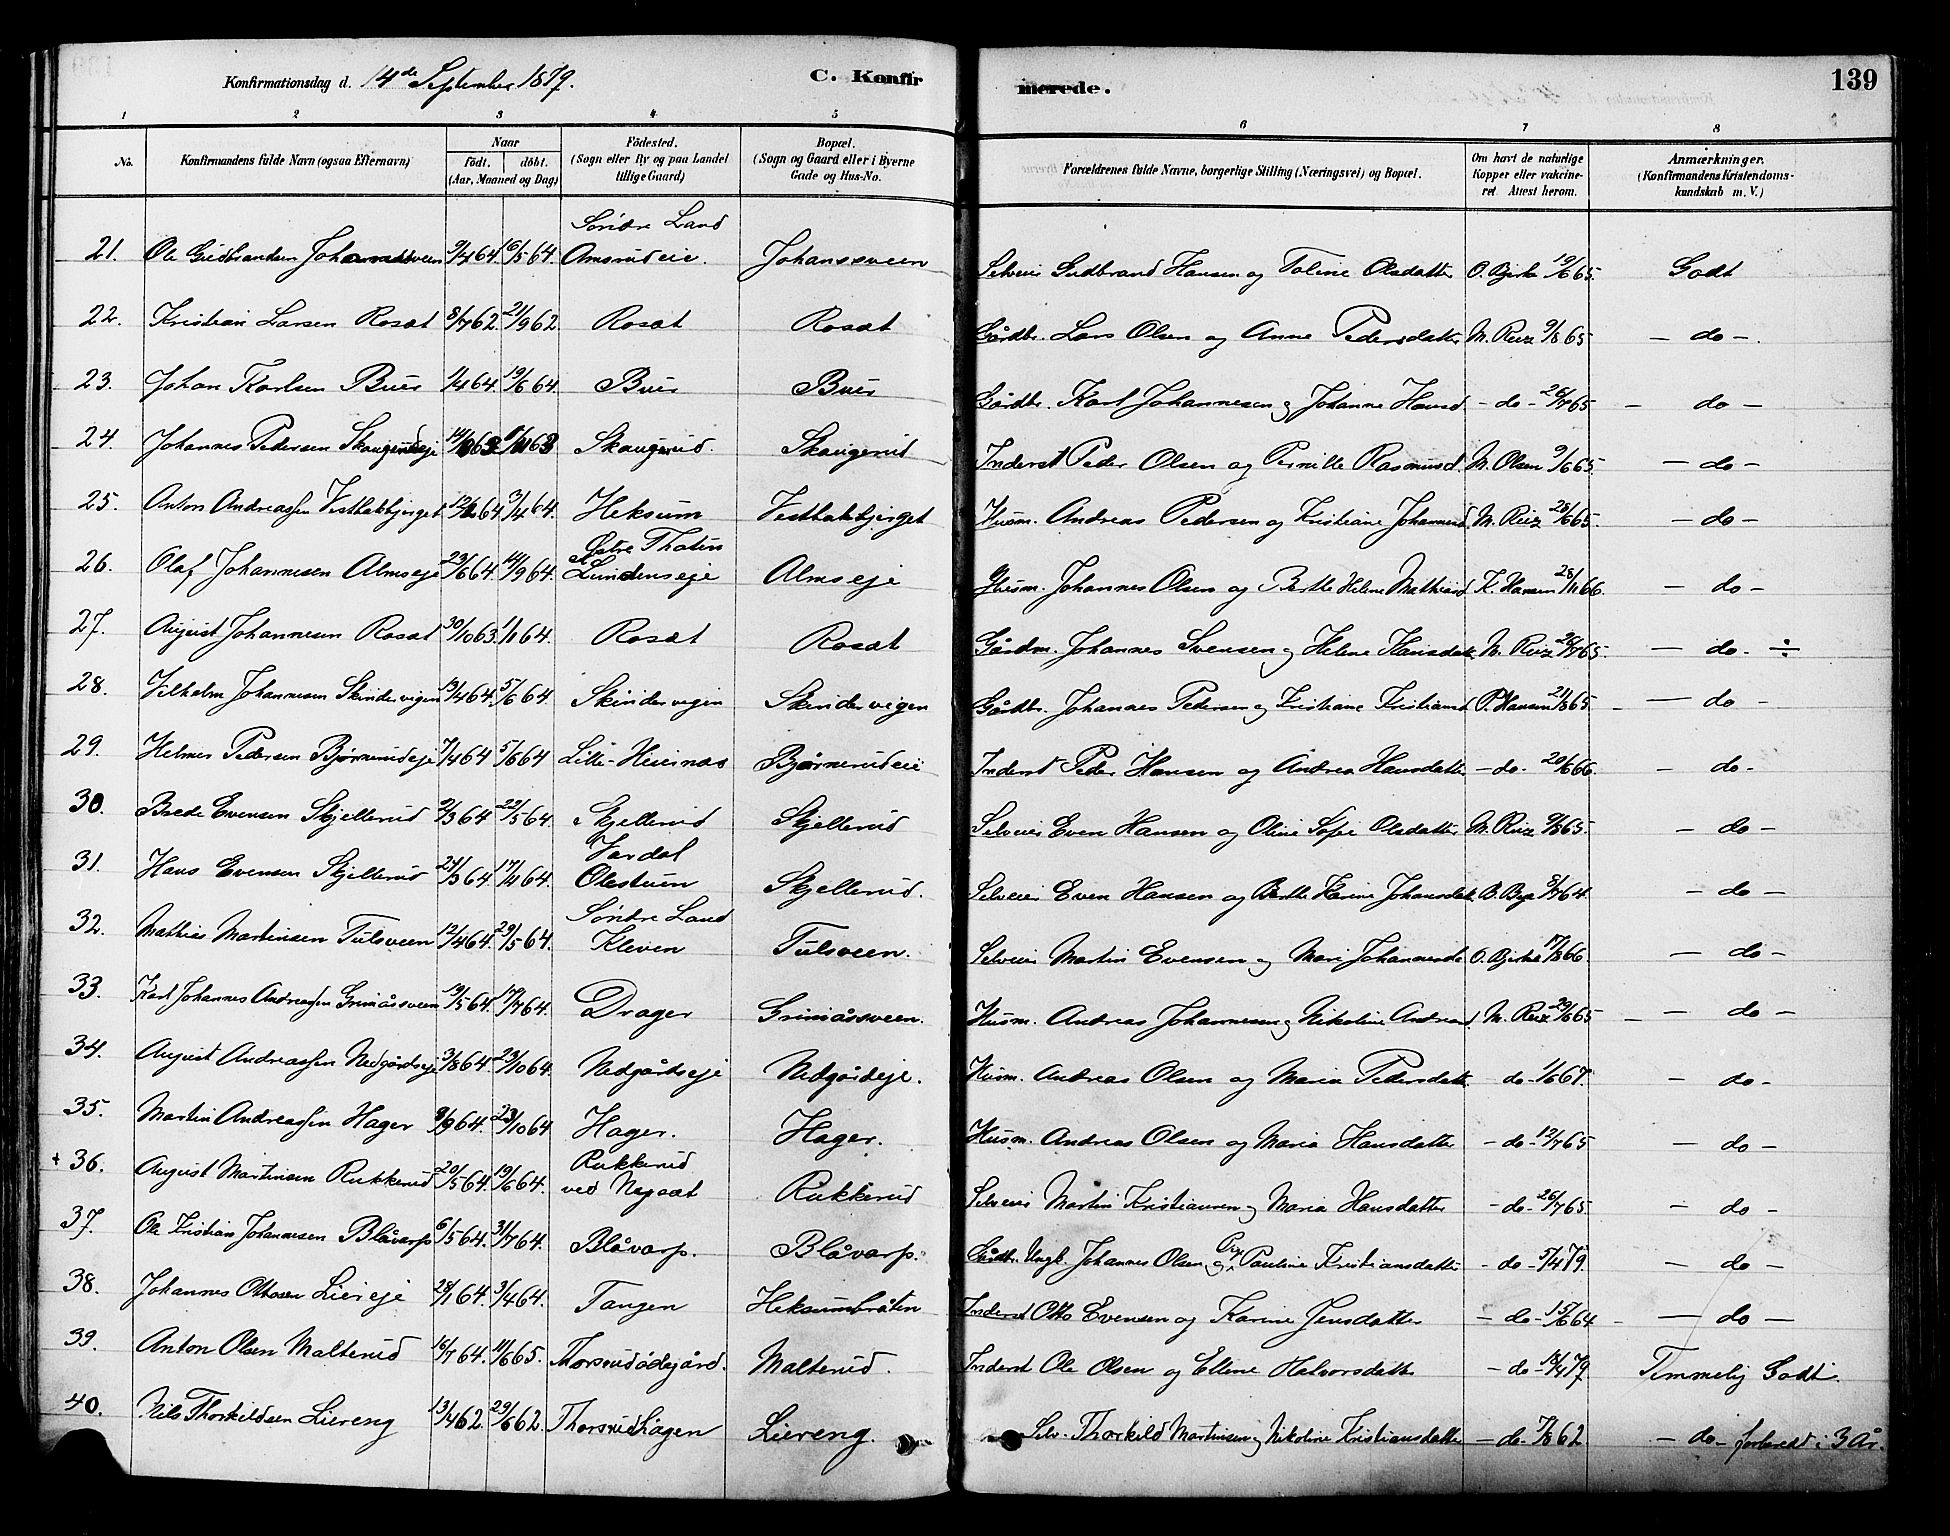 Konfirmationsdag d. 14de September 1879. C. Konfirmerede. 139
1 2 3 4 5 6 7 8
No. Konfirmandens fulde Navn (ogsaa Efternavn) Naar födt. döbt. (Aar, Maaned og Dag) Födested. (Sogn eller By og paa Landet tillige Gaard) Bopæl. (Sogn og Gaard eller i Byerne Gade og Hus-No. Forældrenes fulde Navne, borgerlige Stilling (Næringsvei) og Bopæl. Om havt de naturlige Kopper eller vakcineret Attest herom. Anmærkninger. (Konfirmandens Kristendomskundskab m. V.)
21. Ole Gudbrandsen Johannesveen 9/4 64. 16/5 64. Söndre Land Amsrudeie. Johanssveen Selveier Gudbrand Hansen og Toline Olsdatter O. Bjerke 19/6 65. Godt
22. Kristian Larsen Rosæt 8/7 62. 21/9 62. Rosæt Rosæt Gårdbr. Lars Olsen og Anne Pedersdatter M. Reiz 9/8 65 — do —.
23. Johan Karlsen Buer 1/4 64. 19/6 64. Buer Buer Gårdbr. Karl Johannesen og Johanne Hansd — do — 26/7 65 — do —
24. Johannes Pedersen Skaugerudeje 63 63 Skaugerud. Skaugerud Inderst Peder Olsen og Pernille Rasmusd. M. Olsen 9/6 65. — do —
25. Anton Andreassen Vestbakbjerget 64 3/4 64. Heksum Vestbakbjerget Husm. Andreas Pedersen og Kristiane Johannesd M. Reiz 28/6 65. — do —
26. Olaf Johannesen Almseje 23/6 64. 14/9 64. Østre Thoten Lundenseje Almseje Husm. Johannes Olsen og Berthe Helene Mathiasd K. Hansen 28/11 66. — do —
27. August Johannesen Rosæt 30/10 63. 1/1 64. Rosæt Rosæt Gårdm. Johannes Svensen og Helene Hansdatt. M. Reiz 26/7 65. — do. ÷
28. Vilhelm Johannesen Skindervigen 13/4 64. 5/6 64. Skindervigen Skindervigen Gårdbr. Johannes Pedersen og Kristiane Kristiansd P. Hansen 21/8 65. — do —
29. Helmer Pedersen Bjørnerudeje 7/4 64 5/6 64 Lille-Heiernæs Bjørnerudeie Inderst Peder Hansen og Andrea Hansdatter — do — 20/6 66. — do —
30. Brede Evensen Skjellerud 9/3 64 22/5 64. Skjellerud Skjellerud Selveier Even Hansen og Oline Sofie Olsdatter M. Reiz 9/8 65. — do —
31. Hans Evensen Skjellerud 24/3 64. 17/4 64. Vardal Olestuen Skjellerud. Selveier Even Hansen og Berthe Karine Johansdatt. 8/7 64. — do —
32. Mathias Martinsen Tulsveen 12/4 64. 29/5 64. Söndre Land Kleven Tulsveen. Selveier Martin Evensen og Mari Johannesda O. Bjerke 17/8 66. — do —
33. Karl Johannes Andreassen Grimåssveen 19/5 64. 17/7 64. Drager Grimåssveen. Husm. Andreas Johannesen og Nikoline Andread M. Reiz 29/6 65 — do —
34. August Andreassen Nedgårdseje 3/8 64. 23/10 64. Nedgårdseje Nedgårdeje. Husm. Andreas Olsen og Maria Pedersdatt. do — 1/6 67. — do —
35. Martin Andreassen Hager 8/9 64. 23/10 64 Hager. Hager. Husm. Andreas Olsen og Maria Hansdatter — do — 12/7 65 — do —
+ 36. August Martinsen Rukkerud 20/5 64. 19/6 64. Rukkerud ved Nysæt Rukkerud Selveier Martin Kristiansen og Maria Hansdatter — do — 26/7 65. — do —
37. Ole Kristian Johannesen Blåvarp 6/5 64. 31/7 64. Blåvarp. Blåvarp. Gårdbr. Ungk. Johannes Olsen og Pige Pauline Kristiansdatter — do — 5/4 79. — do —
38. Johannes Ottosen Liereje 28/1 64. 3/4 64. Tangen Heksumbråten Inderst Otto Evensen og Karine Jensdatter — do — 15/6 64 — do —
39. Anton Olsen Malterud 16/7 64. 11/6 65. Thorsrudødegård. Malterud. Inderst Ole Olsen og Ellene Halvorsdatter — do — 18/4 79 Temmelig Godt.
40. Nils Thorkildsen Liereng 13/4 62. 29/6 62. Thorsrudhagen Liereng. Selv. Thorkild Martinsen og Nikoline Kristiansdatter — do — 7/8 62. — do — forberedt i 3 År.